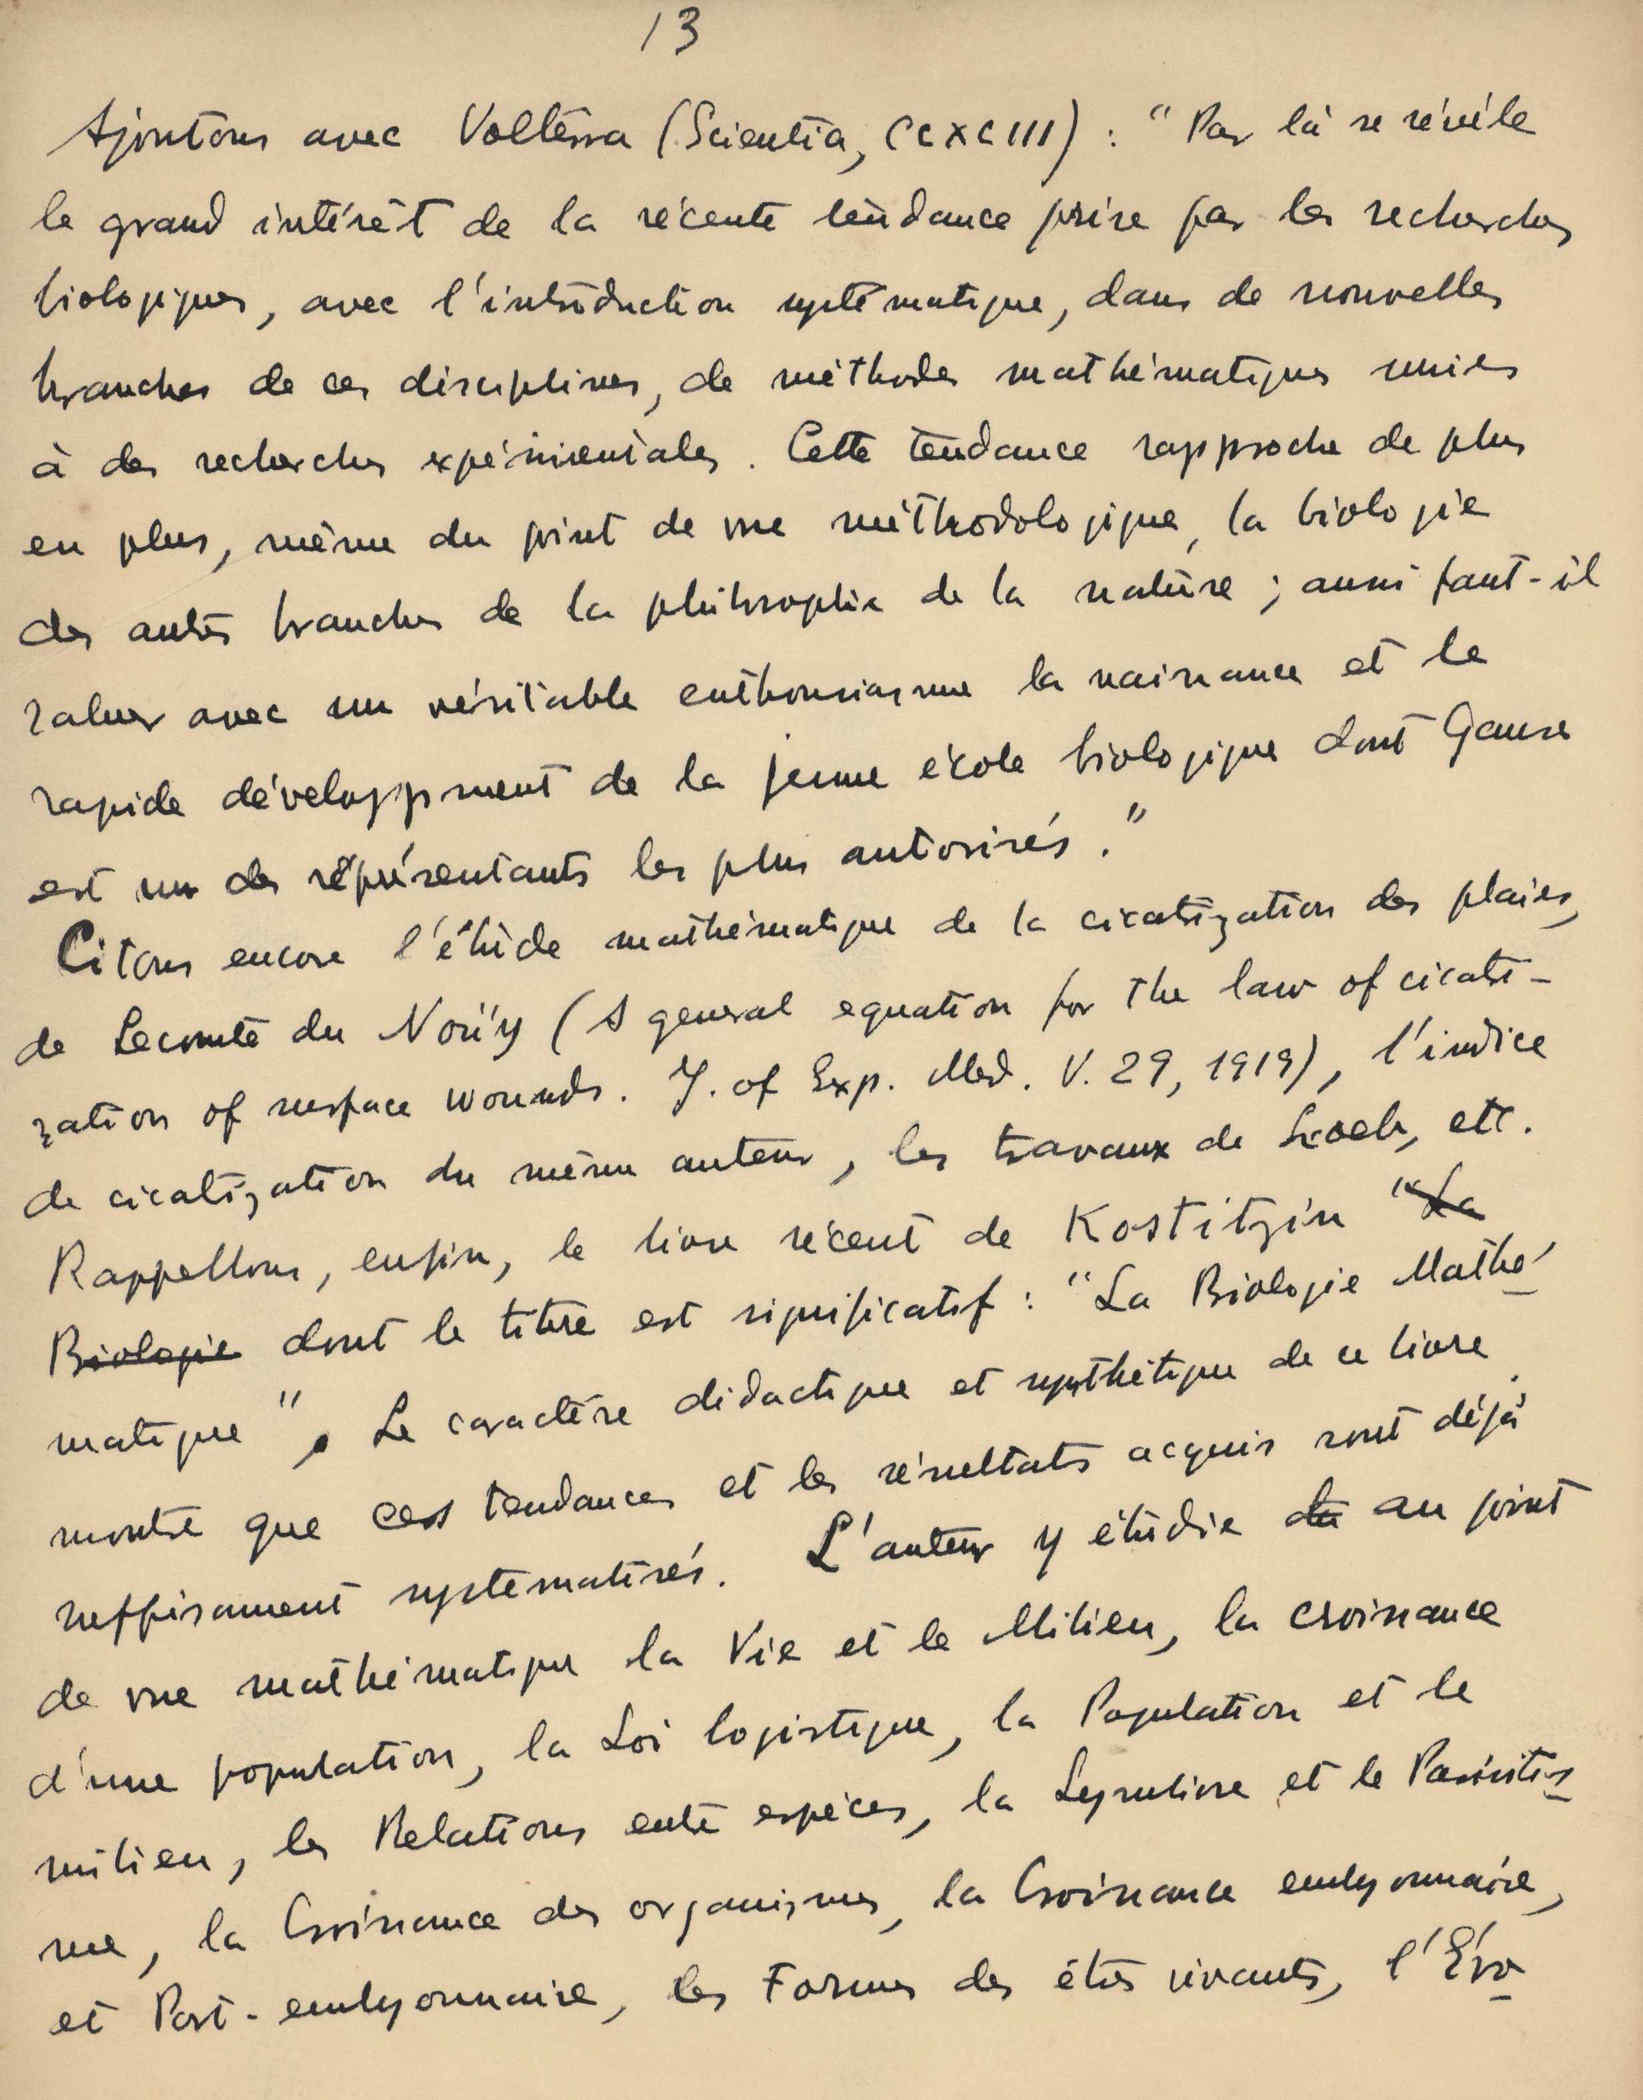 13
Ajoutons avec Volterra (Scientia, CCXCIII) : "Par là se révéle
le grand intérêt de la récente tendance prise par les recherches
biologiques, avec l'introduction systématique, dans de nouvelles
branches de ces disciplines, de méthodes mathématiques unies
à des recherches expérimentales. Cette tendance rapproche de plus
en plus, même du point de vue méthodologique, la biologie
des autres branches de la philosophie de la nature ; aussi faut-il
saluer avec un véritable enthousiasme la naissance et le
rapide développment de la jeune école biologique dont Gause
est un des représentants les plus autorisés."
Citons encore l'étude mathématique de la cicatrization des plaies,
de Lecomte du Noüy (A general equation for the law of cicatri-
zation of surface wounds. J. of Exp. Med. V. 29, 1919), l'indice
de cicatrization du même auteur, les travaux de Loeb, etc.
Rappellons, enfin, le livre récent de Kostitzin "La
Biologie dont le titre est significatif : "La Biologie Mathé-
matique". Le caractère didactique et synthétique de ce livre
montre que ces tendances et les résultats acquis sont déjà
suffisament systematisés. L'auteur y étudie du au point
de vue mathématique la Vie et le Milieu, la croissance
d'une population, la Loi logistique, la Population et le
milieu, les Relations entre espèces, la Symbiose et le Parasitis-
me, la Croissance des organismes, la Croissance embryonnaire,
et Post-embryonnaire, les Formes des êtres vivants, l'Évo-